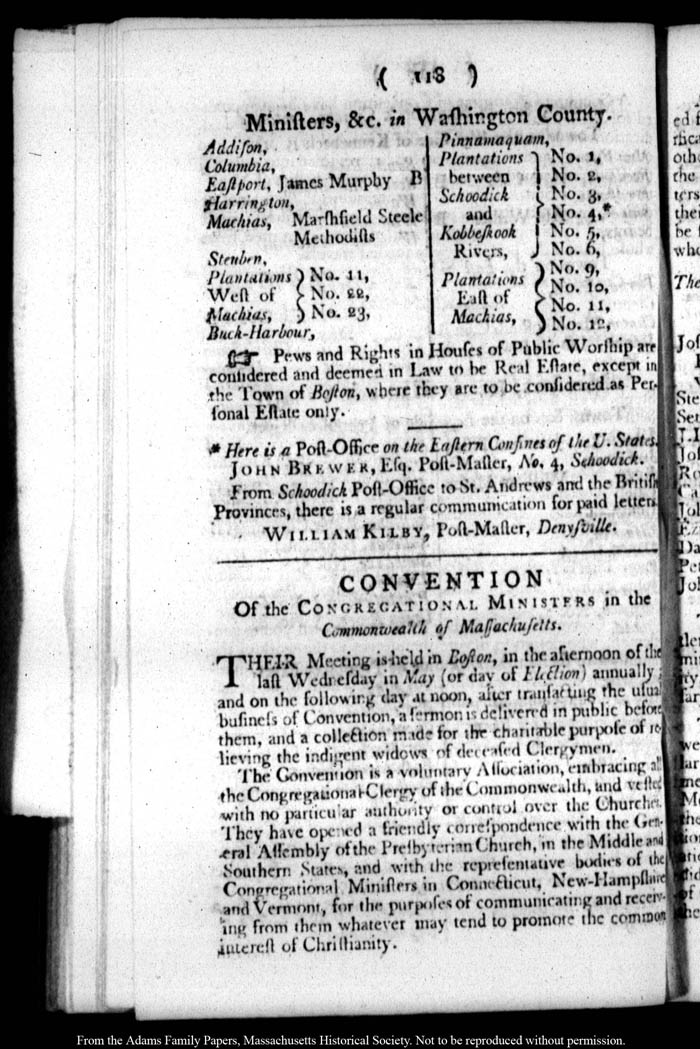 ( 118 )
Miniſters, &c. in Waſhington County.
Addiſon,
Columbia,
Eaſtport, James Murphy B
Harrington,
Machias, Marſhfield Steele
Methodiſts
Steuben,
Plantations } No. 11,
Weſt of } No. 22,
Machias, } No. 23,
Buck-Harbour,
Pinnamaquam,
Plantations } No. 1,
between } No. 2,
Schoodick } No. 3,
and } No. 4,*
Kobbeſkook } No. 5,
Rivers, } No. 6,
Plantations } No. 9,
Eaſt of } No. 10,
Machias, } No. 11,
} No. 12,
☞ Pews and Rights in Houſes of Public Worſhip are
conſidered and deemed in Law to be Real Eſtate, except in
the Town of Boſton, where they are to be conſidered as Per-
ſonal Eſtate only.
* Here is a Poſt-Office on the Eaſtern Confines of the U. States.
JOHN BREWER, Eſq. Poſt-Maſter, No. 4, Schoodick.
From Schoodick Poſt-Office to St. Andrews and the Britiſh
Provinces, there is a regular communication for paid letters.
WILLIAM KILBY, Poſt-Maſter, Denyſville.
CONVENTION
Of the CONGREGATIONAL MINISTERS in the
Commonwealth of Maſſachuſetts.
THEIR Meeting is held in Boſton, in the afternoon of the
laſt Wedneſday in May (or day of Election) annually;
and on the following day at noon, after tranſacting the uſual
buſineſs of Convention, a ſermon is delivered in public before
them, and a collection made for the charitable purpoſe of re-
lieving the indigent widows of deceaſed Clergymen.
The Convention is a voluntary Aſſociation, embracing all
the Congregational Clergy of the Commonwealth, and veſted
with no particular authority or control over the Churches.
They have opened a friendly correſpondence with the Gen-
eral Aſſembly of the Preſbyterian Church, in the Middle and
Southern States, and with the repreſentative bodies of the
Congregational Miniſters in Connecticut, New-Hampſhire
and Vermont, for the purpoſes of communicating and receiv-
ing from them whatever may tend to promote the common
intereſt of Chriſtianity.
From the Adams Family Papers, Massachusetts Historical Society. Not to be reproduced without permission.